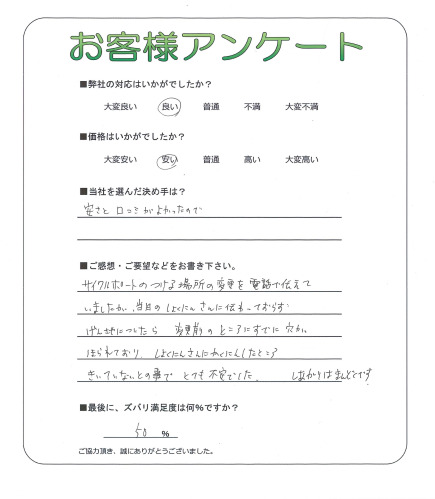 お客様アンケート
■弊社の対応はいかがでしたか?
大変良い 良い 普通 不満 大変不満
■価格はいかがでしたか?
大変安い 安い 普通 高い 大変高い
■当社を選んだ決め手は?
安さと口コミがよかったので
■ご感想・ご要望などをお書き下さい。
サイクルポートのつける場所の変更を電話で伝えて
いましたが、当日のしょくにんさんに伝わっておらず
げんばについたら 変更前のところにすでに穴が
ほられており、しょくにんさんにかくにんしたところ
きいていないとの事でとても不安でした。 しあがりはまんぞくです
■最後に、ズバリ満足度は何%ですか?
50 %
ご協力頂き、誠にありがとうございました。